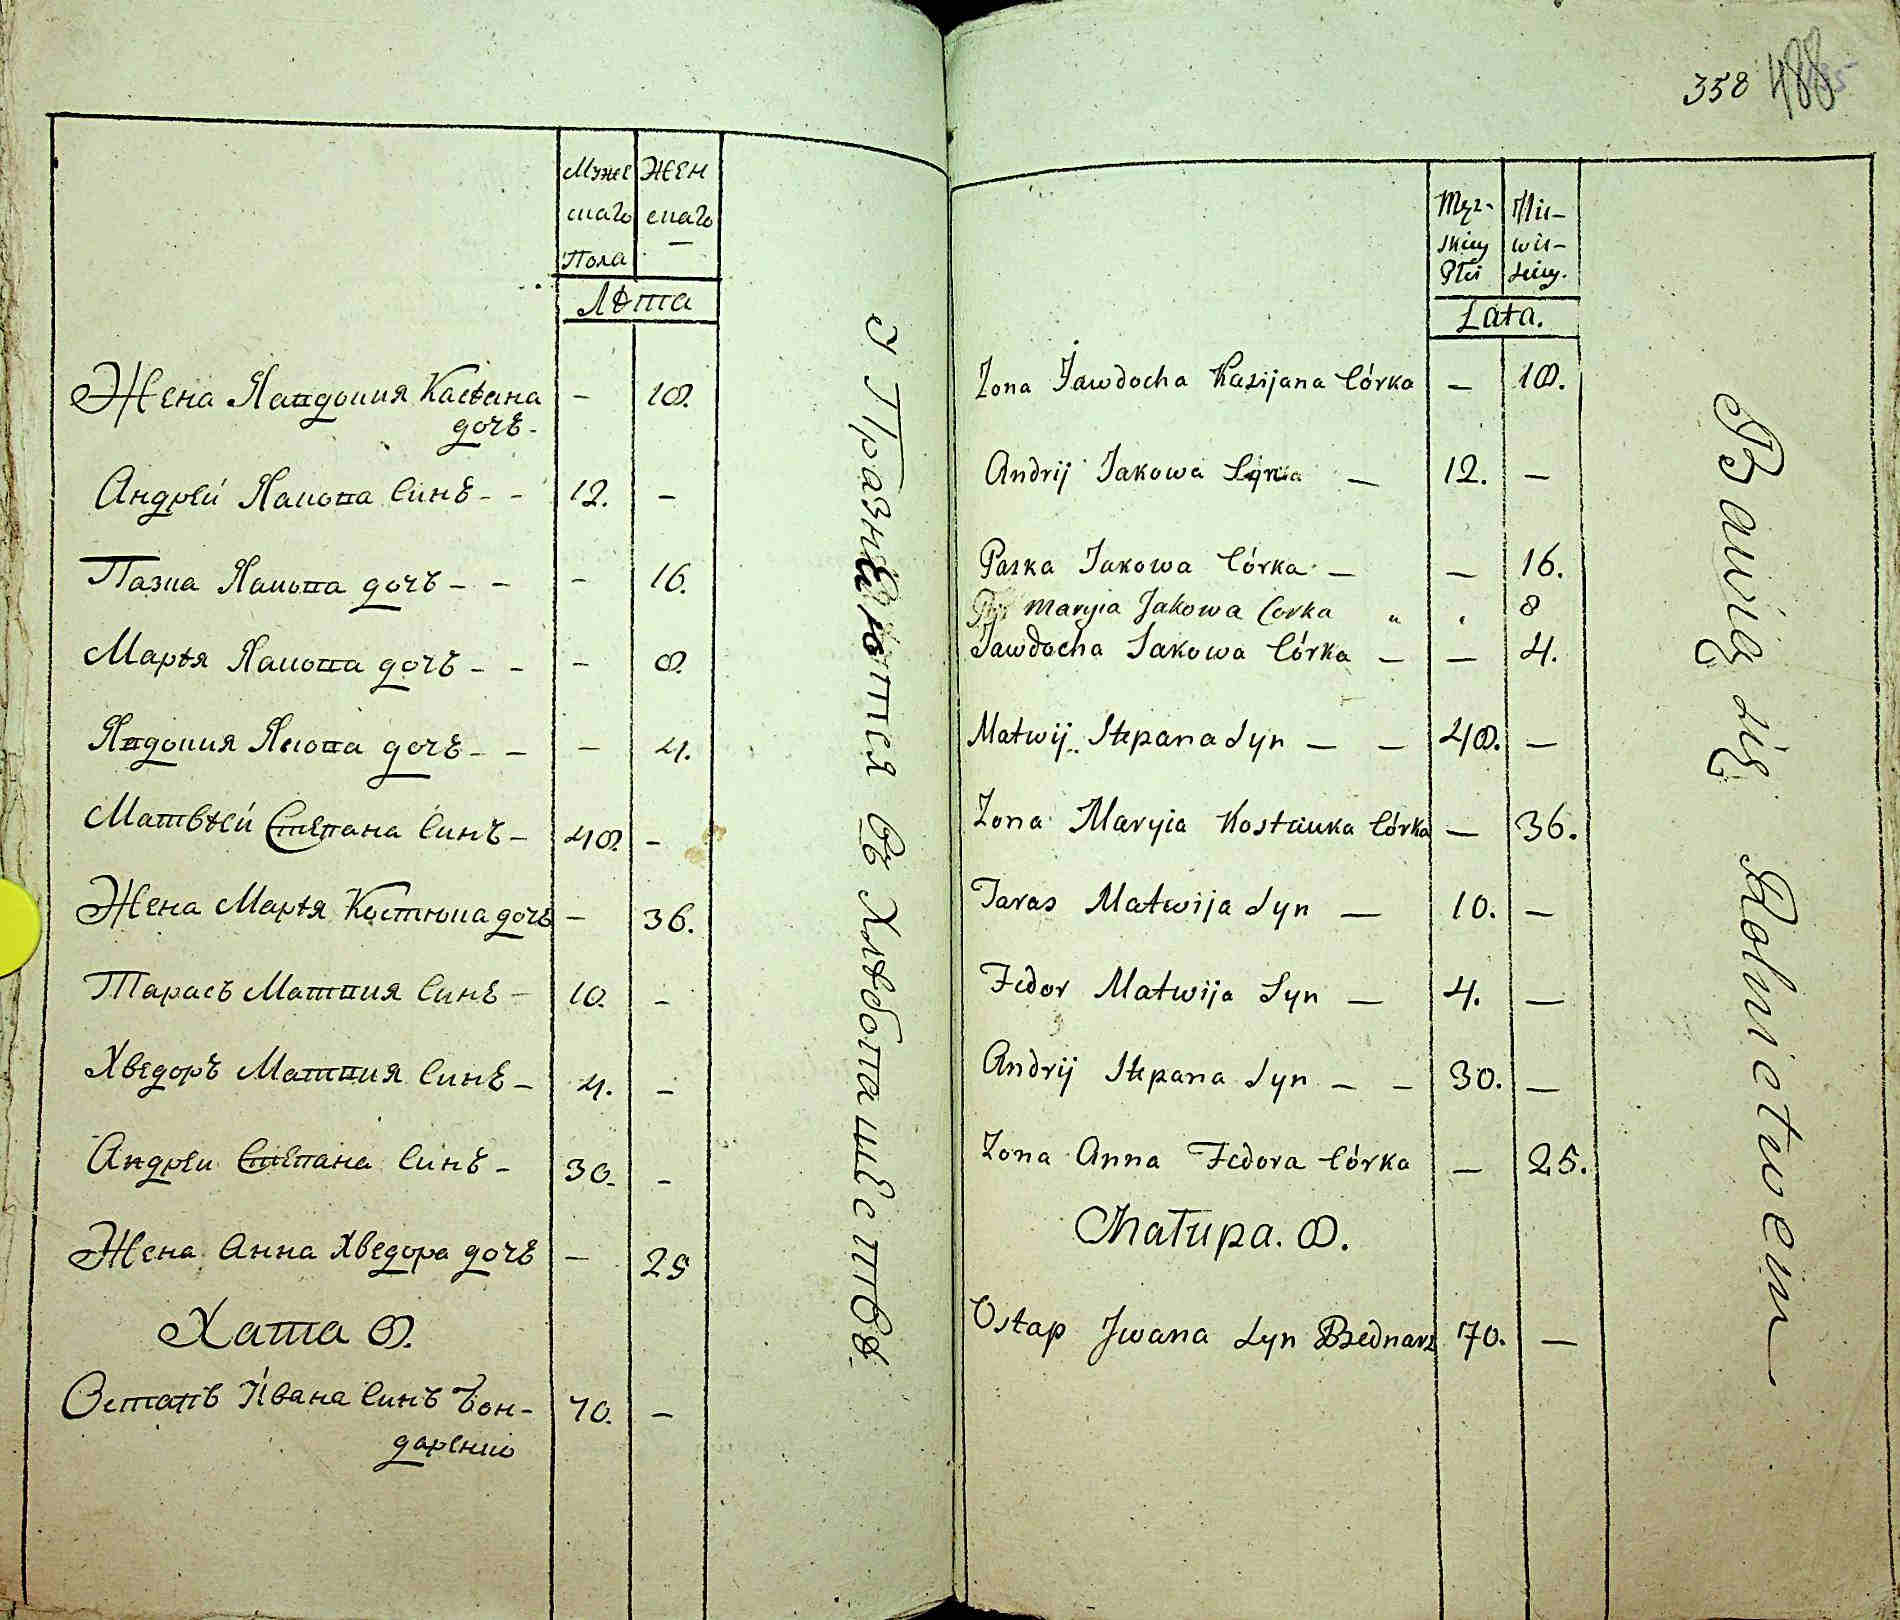 Муже Жен
скаго скаго
Пола
Лѣта
Жена Явдокия Касѣяна - 18.
дочь -
Андрѣй Якова Синъ - - 12. -
Пазка Якова дочъ - - - 16.
Марѣя Якова дочъ - - - 8.
Явдокия Якова дочъ - - - 4.
Матвѣй Степана Синъ - 48. -
Жена Марѣя Костюка дочъ - 36.
Тарасъ Матвия Синъ - 10. -
Хведоръ Матвия Синъ - 4. -
Андрѣй Степана Синъ - 30. -
Жена Анна Хведора дочъ - 25
Хата 8.
Остапъ Ивана Синъ Бон- 70. -
даренко
358 488
Męz- Nie-
skiey wie-
Płci skiey.
Lata.
Zona Jawdocha Kasijana Córka - 18.
Andrij Jakowa Syn - 12. -
Paska Jakowa Córka - - 16.
Maryia Jakowa Corka " . 8
Jawdocha Jakowa Córka - - 4.
Matwij Stepana Syn - - 48. -
Zona Maryia Kostiuka Córka - 36.
Taras Matwija Syn - 10. -
Fedor Matwija Syn - 4. -
Andrij Stepana Syn - - 30. -
Zona Anna Fedora Córka - 25.
Chałupa. 8.
Ostap Jwana Syn Bednarz 70. -
Bawią się Rolnictwem